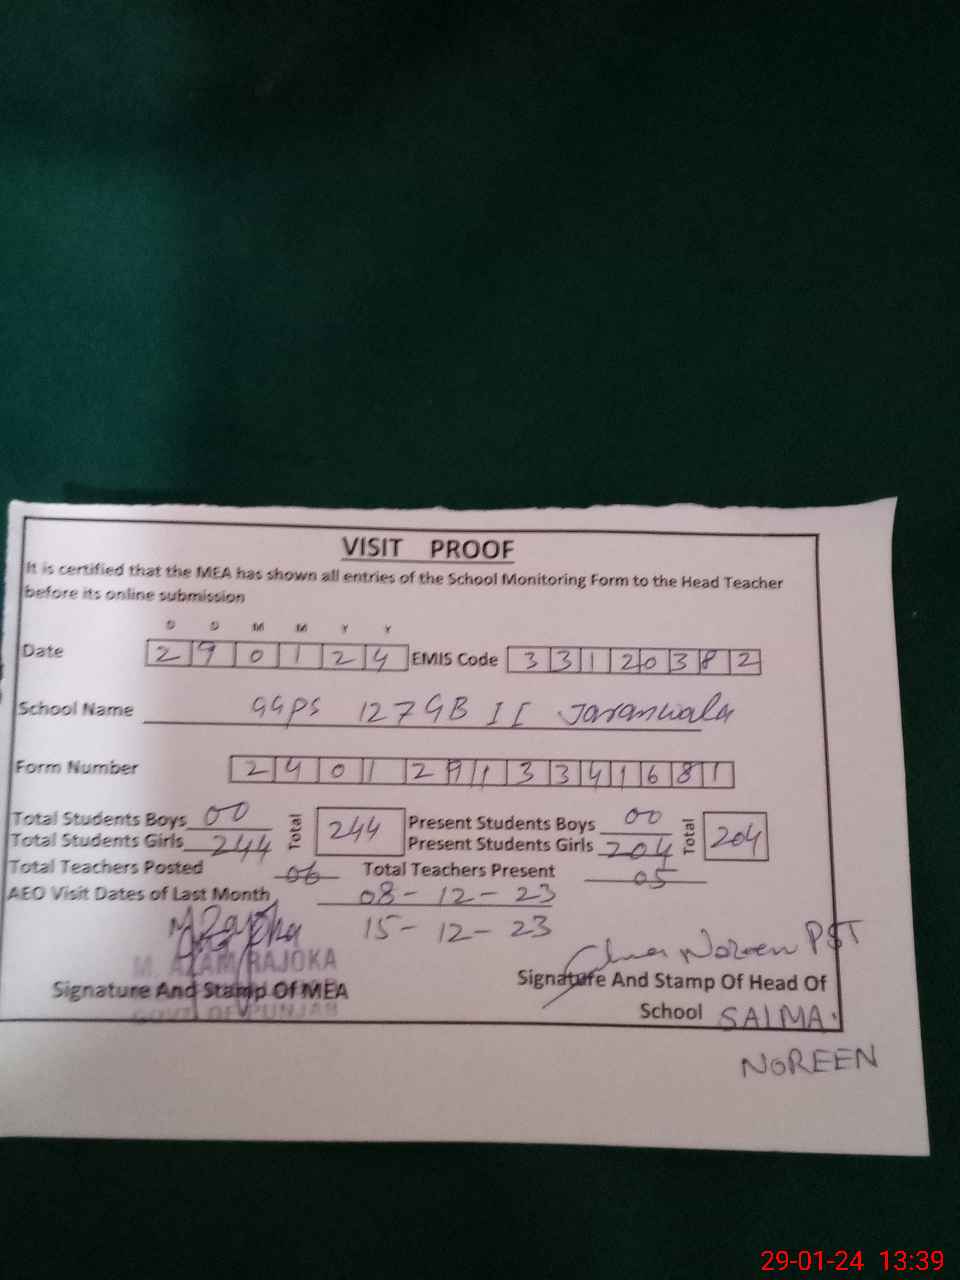 VISIT PROOF
It is certified that the MEA has shown all entries of the School Monitoring Form to the Head Teacher
before its online submission
D D M M Y Y
Date 2 9 0 1 2 4 EMIS Code 3 3 1 2 0 3 8 2
School Name GGPS 127 GB II Jaranwala
Form Number 2 4 0 1 2 9 1 3 3 4 1 6 8 1
Total Students Boys 00 Total 244 Present Students Boys 00 Total 204
Total Students Girls 244 Present Students Girls 204
Total Teachers Posted 06 Total Teachers Present 05
AEO Visit Dates of Last Month 08-12-23
15-12-23
M. AZAM RAJOKA
Noreen PST
Signature And Stamp Of MEA Signature And Stamp Of Head Of
GOVT. OF PUNJAB
School SALMA.
NOREEN
29-01-24 13:39